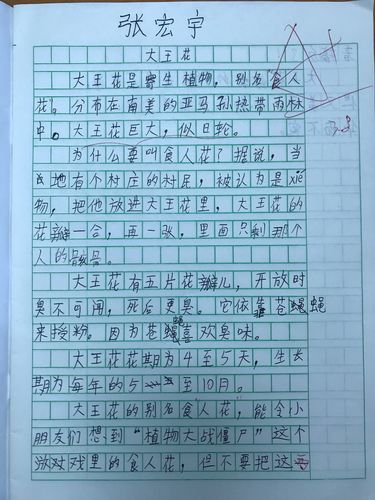 张宏宇
大王花
大王花是寄生植物，别名食人
花。分布在南美的亚马孙热带雨林
中。大王花巨大，似日轮。
为什么要叫食人花？据说，当
地有个村庄的村民，被认为是xié
物，把他放进大王花里，大王花的
花瓣一合，再一张，里面只剩那个
人的骸骨。
大王花有五片花瓣儿，开放时
臭不可闻，死后更臭。它依靠苍蝇
来授粉。因为苍蝇喜欢臭味。
大王花花期为4至5天，生长
期为每年的5至10月。
大王花的别名食人花，能令小
朋友们想到“植物大战僵尸”这个
游戏里的食人花，但不要把这